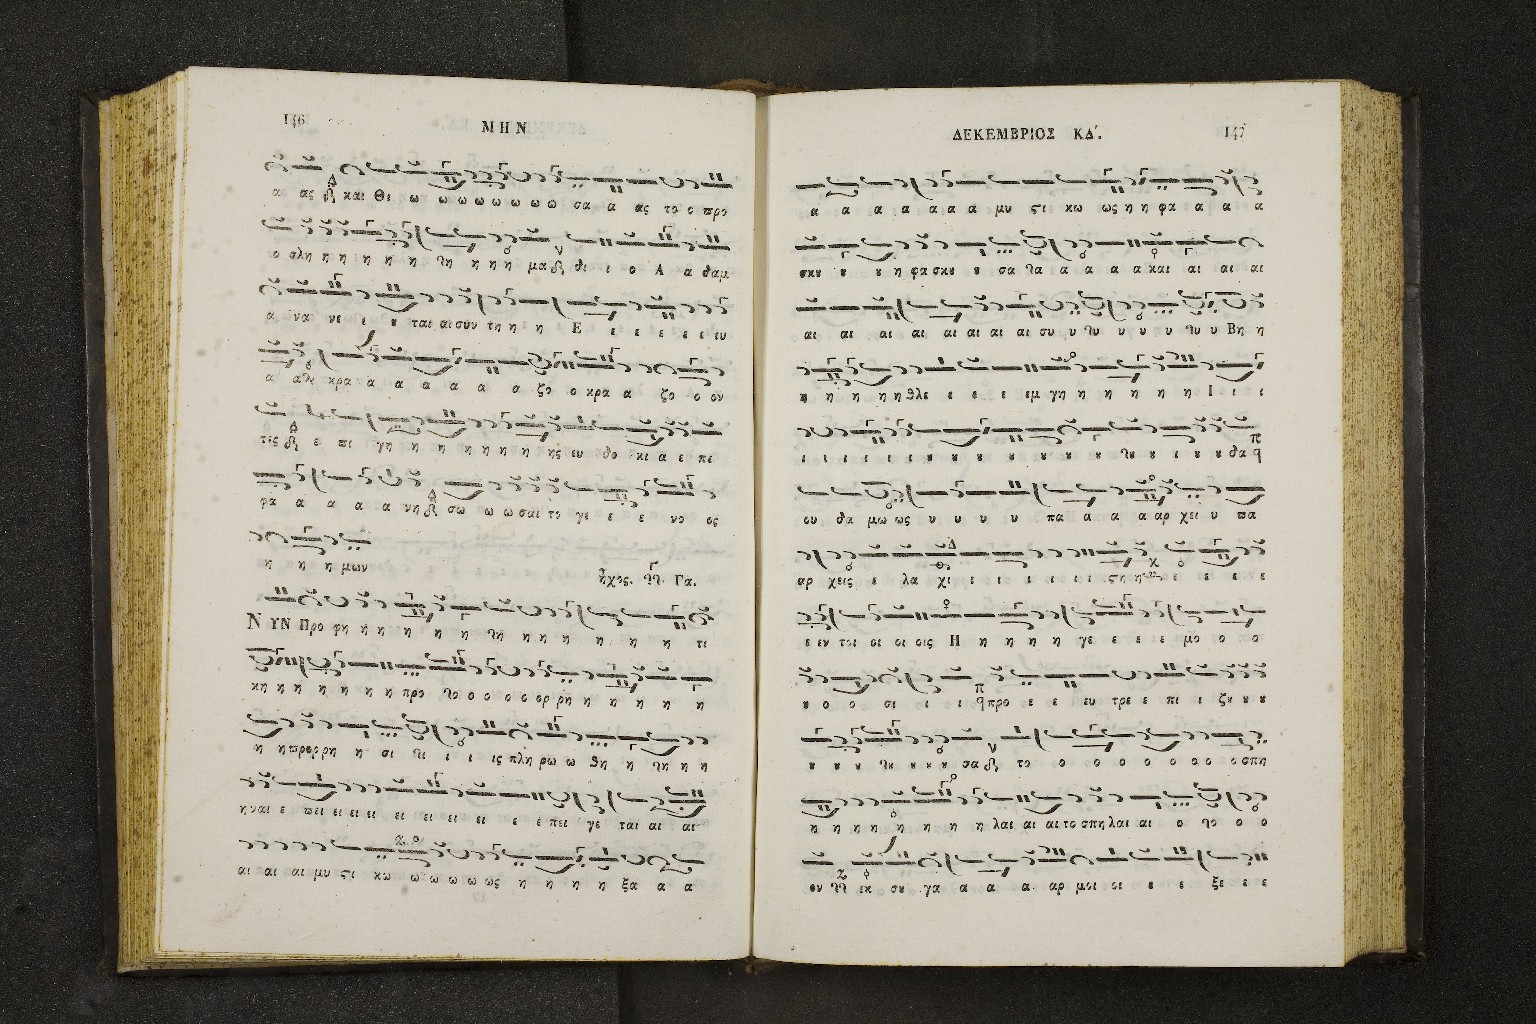 146 ΜΗΝ
α ας και Θι ω ω ω ω ω ω ω ω σα α ας το ο προ
ο σλη η η η η η τη η η η μα φι ι ο Α α θαμ
α να νε ι υ ται αι συν τη η η Ε ε ε ε ε ε ευ
α α κρα α α α α α α ζο ο κρα α ζο ο ον
τες ε πι γη η η η η η η ης ευ δο κι α ε πε
φα α α α α νη σω ω ω σαι το γε ε ε νο ος
η η η μων
ἦχος Γα.
ΝΥΝ Προ φη η η η η η τη η η η η η η τι
κη η η η η η η προ το ο ο ο ο ορ ρη η η η η η
η η προρρη η σι τι ι ι ις πλη ρω ω θη η τη η η
η ναι ε πει ει ει ει ει ει ει ει ε ε πει γε ται αι αι
αι αι αι μυ στι κω ω ω ω ω ως η η η η ξα α α
ΔΕΚΕΜΒΡΙΟΣ ΚΔʹ. 147
α α α α α α α μυ στι κω ως η η φα α α α
σκυ υ υ η φα σκυ υ σα τα α α α α και αι αι αι
αι αι αι αι αι αι αι αι συ υ τυ υ υ υ τυ υ Βη η
η η η η η θλε ε ε ε εμ γη η η η η η Ι ι ι
ι ι ι ι ι υ υ υ υ υ υ υ τυ υ ι υ υ δα
ου δα μω ως υ υ υ υ πα α α α αρ χει υ πα
αρ χεις ε λα χι ι ι ι ι ι ι στη η ε ε ε ε
ε εν τοι οι οι οις Η η η η η γε ε ε ε μο ο ο
υ ο ο σι ι ι προ ε ε ευ τρε ε πι ι ζυ υ υ
υ υ υ τυ υ υ υ σα το ο ο ο ο ο ο ο ο σπη
η η η η η η η η λαι αι αι το σπη λαι αι ο το ο ο
ον εκ συ γα α α α αρ μοι οι υ ε ξε ε ε